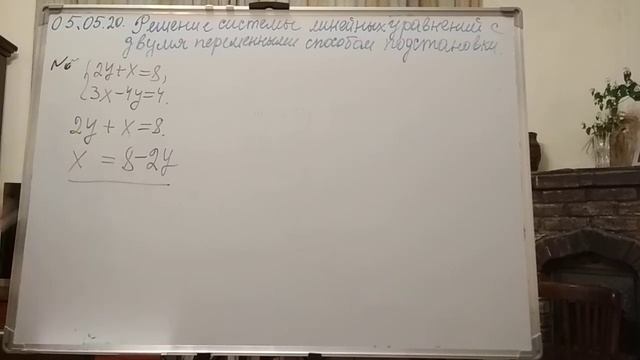 05.05.20. Решение системы линейных уравнений с
двумя переменными способом подстановки.
№6 {2y+x=8,
{3x-4y=4.
2y+x=8.
x = 8-2y